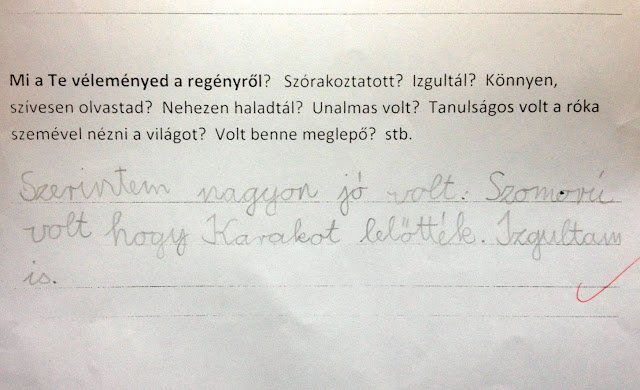 Mi a Te véleményed a regényről? Szórakoztatott? Izgultál? Könnyen,
szívesen olvastad? Nehezen haladtál? Unalmas volt? Tanulságos volt a róka
szemével nézni a világot? Volt benne meglepő? stb.
Szerintem nagyon jó volt. Szomorú
volt hogy Karakot lelőtték. Izgultam
is.